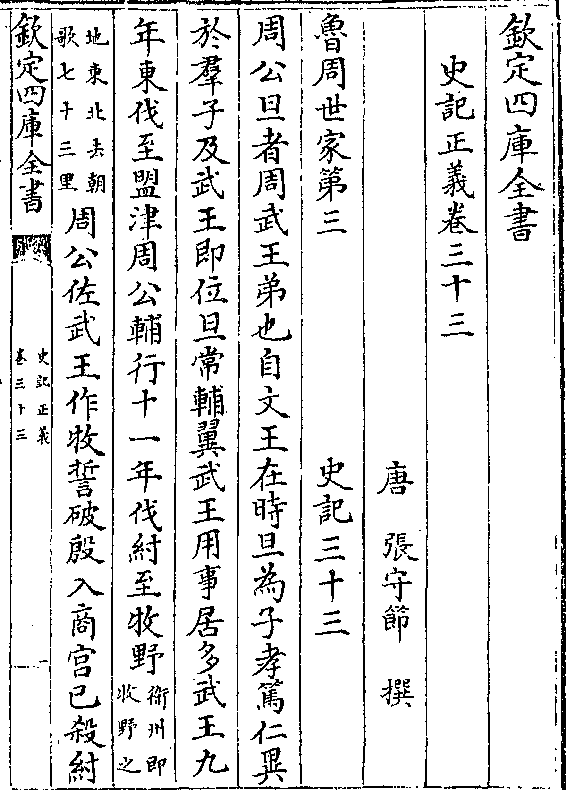 欽定四庫全書
史記正義卷三十三
唐 張守節 撰
魯周世家第三 史記三十三
周公旦者周武王弟也自文王在時旦為子孝篤仁異
於羣子及武王即位旦常輔翼武王用事居多武王九
年東伐至盟津周公輔行十一年伐紂至牧野
衞州即
牧野之
地東北去朝
歌七十三里
周公佐武王作牧誓破殷入商宮已殺紂
欽定四庫全書
史記正義
卷三十三
一